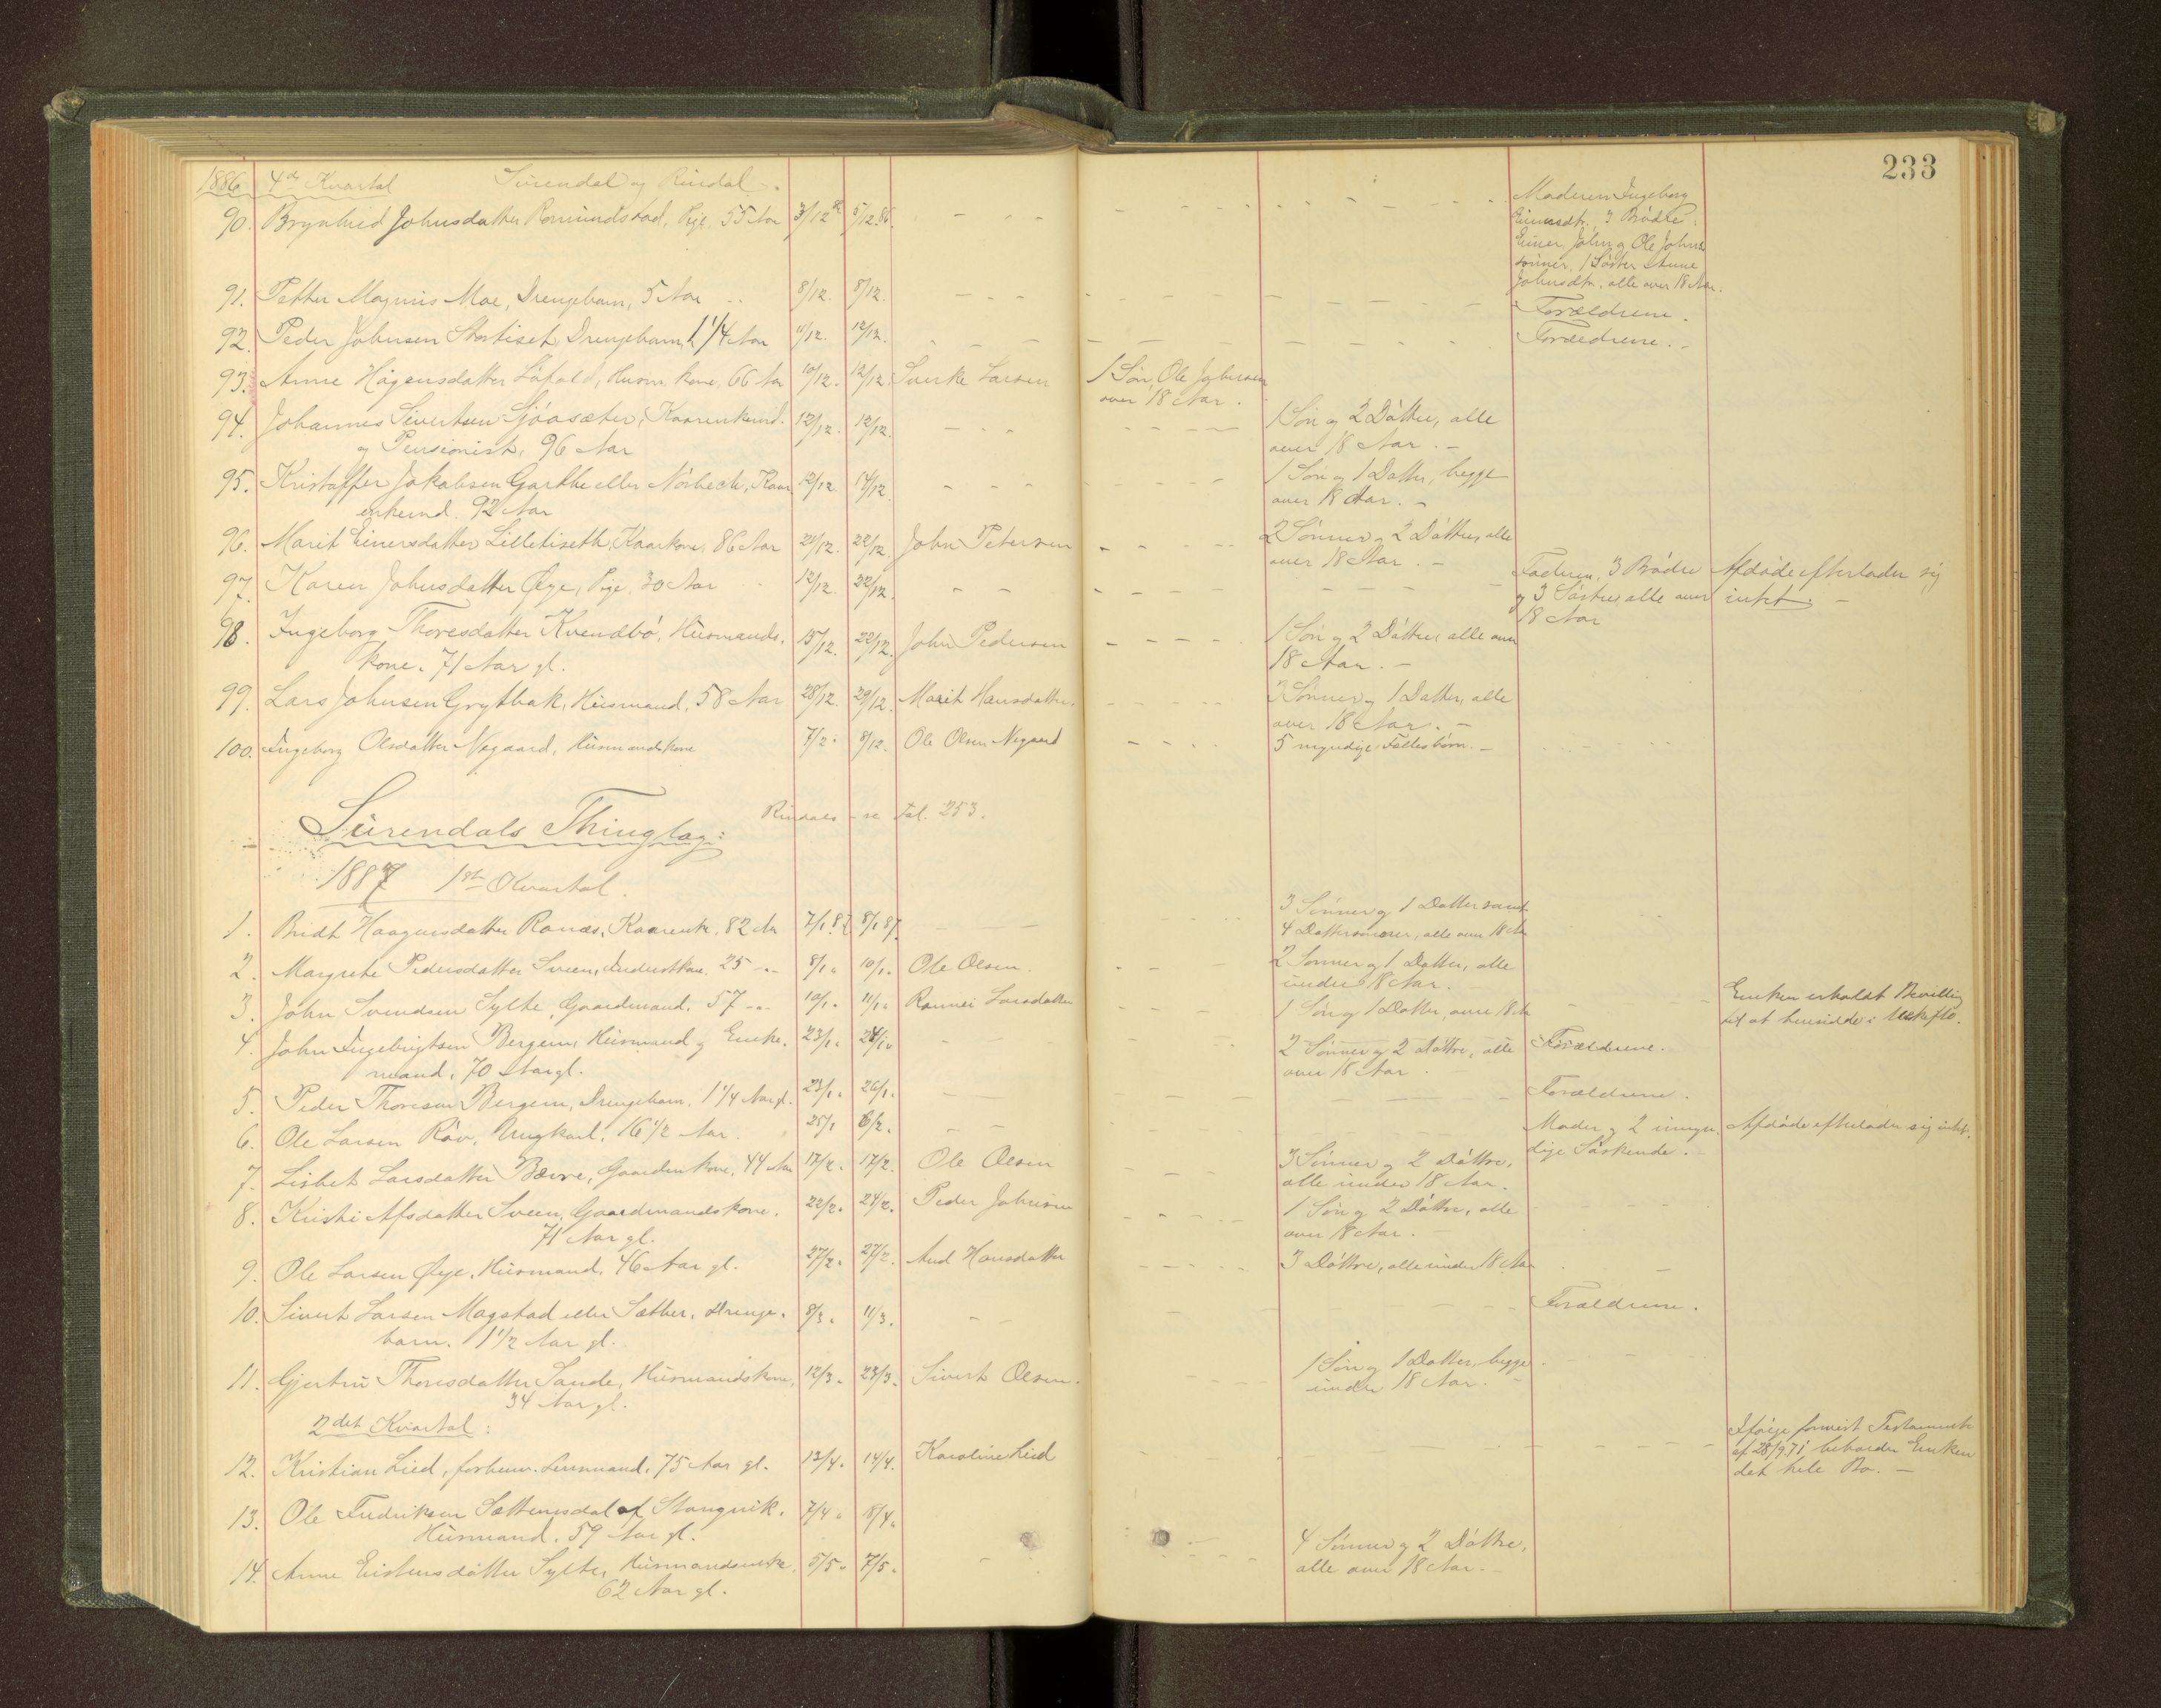 233
1886 4de Kvartal Surendal og Rindal.
90. Brynhild Johnsdatter Romundstad, Pige, 55 Aar 3/12 86 5/12.86. Moderen Ingeborg
Einersdtr., 3 Brödre:
Einer, John og Ole Johns
sönner, 1 Söster Anne
Johnsdtr. alle over 18 Aar.
91. Petter Magnus Moe, Drengebarn, 5 Aar 8/12. 8/12. Forældrene.
92. Peder Johnsen Stortiset, Drengebarn, 1 1/4 Aar 11/12. 12/12. Forældrene.
93. Anne Hågensdatter Löfald, Husm. kone, 66 Aar 10/12. 12/12. Sverke Larsen 1 Sön, Ole Johnsen
over 18 Aar.
94. Johannes Sivertsen Sjöasæter, Kaarenkemd. 12/12. 12/12. 1 Sön og 2 Döttre, alle
og Pensionist, 96 Aar over 18 Aar.
95. Kristoffer Jakobsen Garthe eller Nörbech, Kaar 12/12. 14/12. 1 Sön og 1 Datter, begge
enkemd. 92 Aar over 18 Aar.
96. Marit Einersdatter Lilletiseth, Kaarkone, 86 Aar 21/12. 22/12. John Petersen 2 Sönner og 2 Döttre, alle
over 18 Aar.
97. Karen Johnsdatter Öye, Pige, 30 Aar 12/12. 22/12. Faderen, 3 Brödre Afdöde efterlader sig
og 3 Söstre, alle over intet.
18 Aar
98. Ingeborg Thoresdatter Kvendbö, Husmands. 15/12. 22/12. John Pedersen 1 Sön og 2 Döttre, alle over
kone. 71 Aar gl. 18 Aar.
99. Lars Johnsen Grytbak, Husmand, 58 Aar 28/12. 29/12. Marit Hansdatter. 3 Sönner og 1 Datter, alle
over 18 Aar.
100. Ingeborg Olsdatter Negaard, Husmandskone 7/2. 8/12. Ole Olsen Negaard 5 myndige Fællesbörn.
Rindals - se Fol. 253.
Surendals Thinglag:
1887 1ste Kvartal.
1. Bridt Haagensdatter Ranæs, Kaarenk. 82 Aar 7/1 87 8/1 87. 3 Sönner og 1 Datter samt
4 Dattersönner, alle over 18 Aar
2. Margrete Pedersdatter Sveen, Inderstkone. 25 8/1. 10/1. Ole Olsen. 2 Sönner og 1 Datter, alle
under 18 Aar.
3. John Svendsen Sylte, Gaardmand. 57 10/1. 11/1. Rannei Larsdatter 1 Sön og 1 Datter, over 18 Aar Enken erholdt Bevilling
til at hensidde i Uskifte.
4. John Ingebrigtsen Bergem, Husmand og Enke. 23/1. 24/1. 2 Sönner og 2 Döttre, alle Forældrene.
mand. 70 Aar gl. over 18 Aar.
5. Peder Thoresen Bergem, Drengebarn, 1 1/4 Aar gl. 23/1. 26/1. Forældrene.
6. Ole Larsen Röv, Ungkarl, 16 1/2 Aar. 25/1 6/2. Moder og 2 umyn. Afdöde efterlader sig intet.
dige Söskende.
7. Lisbet Larsdatter Bævre, Gaardmkone, 44 Aar 17/2. 17/2. Ole Olsen 3 Sönner og 2 Döttre,
alle under 18 Aar.
8. Kristi Afsdatter Sveen, Gaardmandskone. 22/2. 24/2. Peder Johnsen 1 Sön og 2 Döttre, alle
71 Aar gl. over 18 Aar.
9. Ole Larsen Öye, Husmand, 46 Aar gl. 27/2. 27/2. Aud Hansdatter 3 Döttre, alle under 18 Aar
10. Sivert Larsen Magstad eller Sæther, Drenge. 8/3. 11/3. Forældrene.
barn. 1 1/2 Aar gl.
11. Gjertru Thoresdatter Sande, Husmandskone, 12/3. 23/3. Sivert Olsen. 1 Sön og 1 Datter, begge
34 Aar gl. under 18 Aar.
2det Kvartal:
12. Kristian Lied, forhenv. Lensmand, 75 Aar gl. 13/4. 14/4. Karoline Lied Ifölge forevist Testamente
af 28/9 71 beholder Enken
det hele Bo.
13. Ole Fredriksen Sættemsdal af Stangvik. 7/4. 8/4.
Husmand. 59 Aar gl.
14. Anne Eistensdatter Sylte, Husmandsenke. 5/5. 7/5. 4 Sönner og 2 Döttre,
62 Aar gl. alle over 18 Aar.